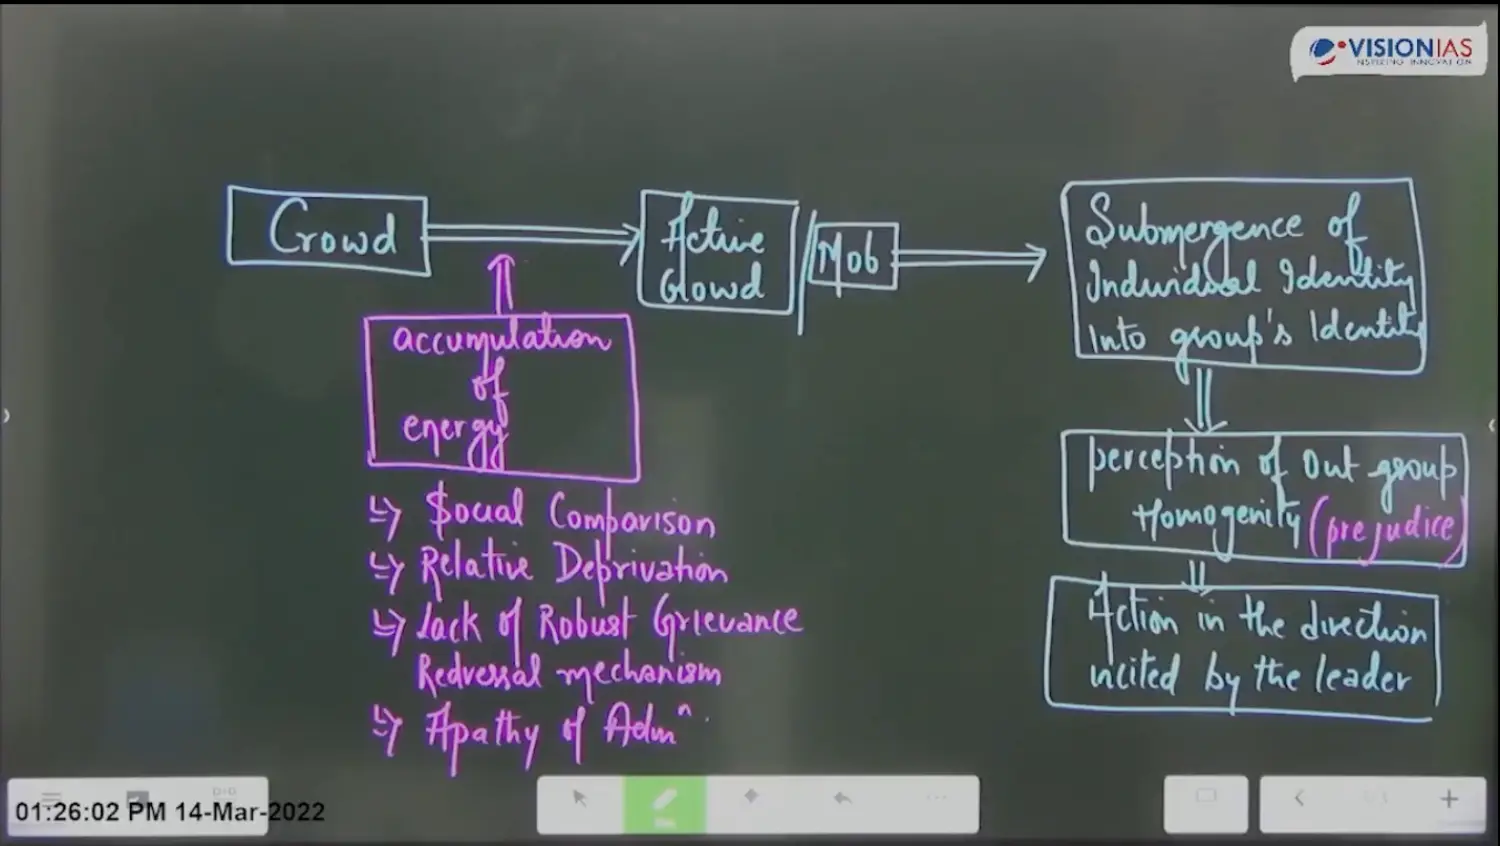 VISIONIAS
INSPIRING INNOVATION
Crowd
Active
Crowd
Mob
accumulation
of
energy
↳ Social Comparison
↳ Relative Deprivation
↳ Lack of Robust Grievance
Redressal mechanism
↳ Apathy of Admⁿ.
Submergence of
Individual Identity
Into group's Identity
perception of Out group
Homogenity (prejudice)
Action in the direction
incited by the leader
01:26:02 PM 14-Mar-2022